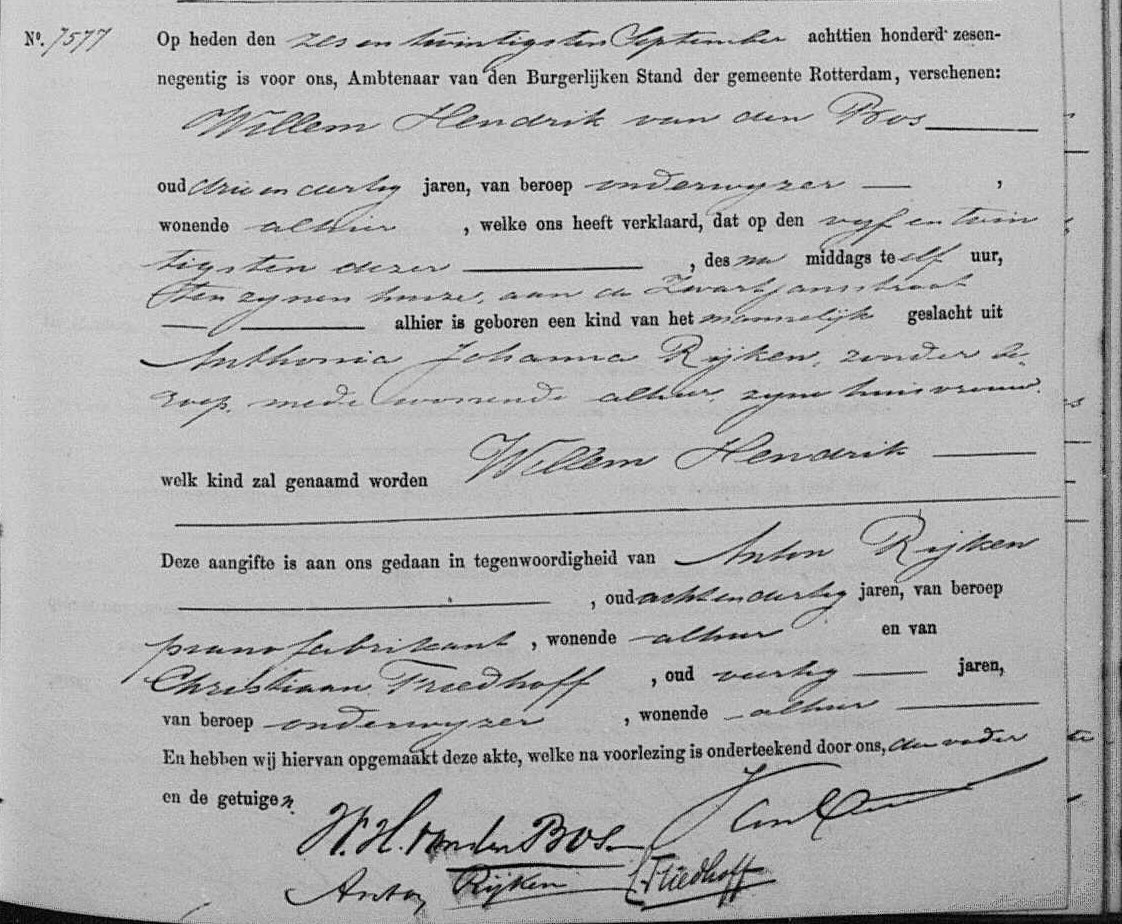 Nº. 7577 Op heden den zes en twintigsten September achttien honderd zesen-
negentig is voor ons, Ambtenaar van den Burgerlijken Stand der gemeente Rotterdam, verschenen:
Willem Hendrik van den Bos
oud drie en dertig jaren, van beroep onderwyzer ,
wonende alhier , welke ons heeft verklaard, dat op den vyf en twin
tigsten dezer , des na middags te elf uur,
ten zynen huize, aan de Zwartjansstraat
alhier is geboren een kind van het mannelijk geslacht uit
Anthonia Johanna Rijken, zonder be-
roep, mede wonende alhier, zyne huisvrouw.
welk kind zal genaamd worden Willem Hendrik
Deze aangifte is aan ons gedaan in tegenwoordigheid van Anton Rijken
, oud acht en dertig jaren, van beroep
pianofabrikant , wonende alhier en van
Christiaan Friedhoff , oud veertig jaren,
van beroep onderwyzer , wonende alhier
En hebben wij hiervan opgemaakt deze akte, welke na voorlezing is onderteekend door ons, den vader
en de getuigen.
W. H. van den Bos.
Anton Rijken C. Friedhoff